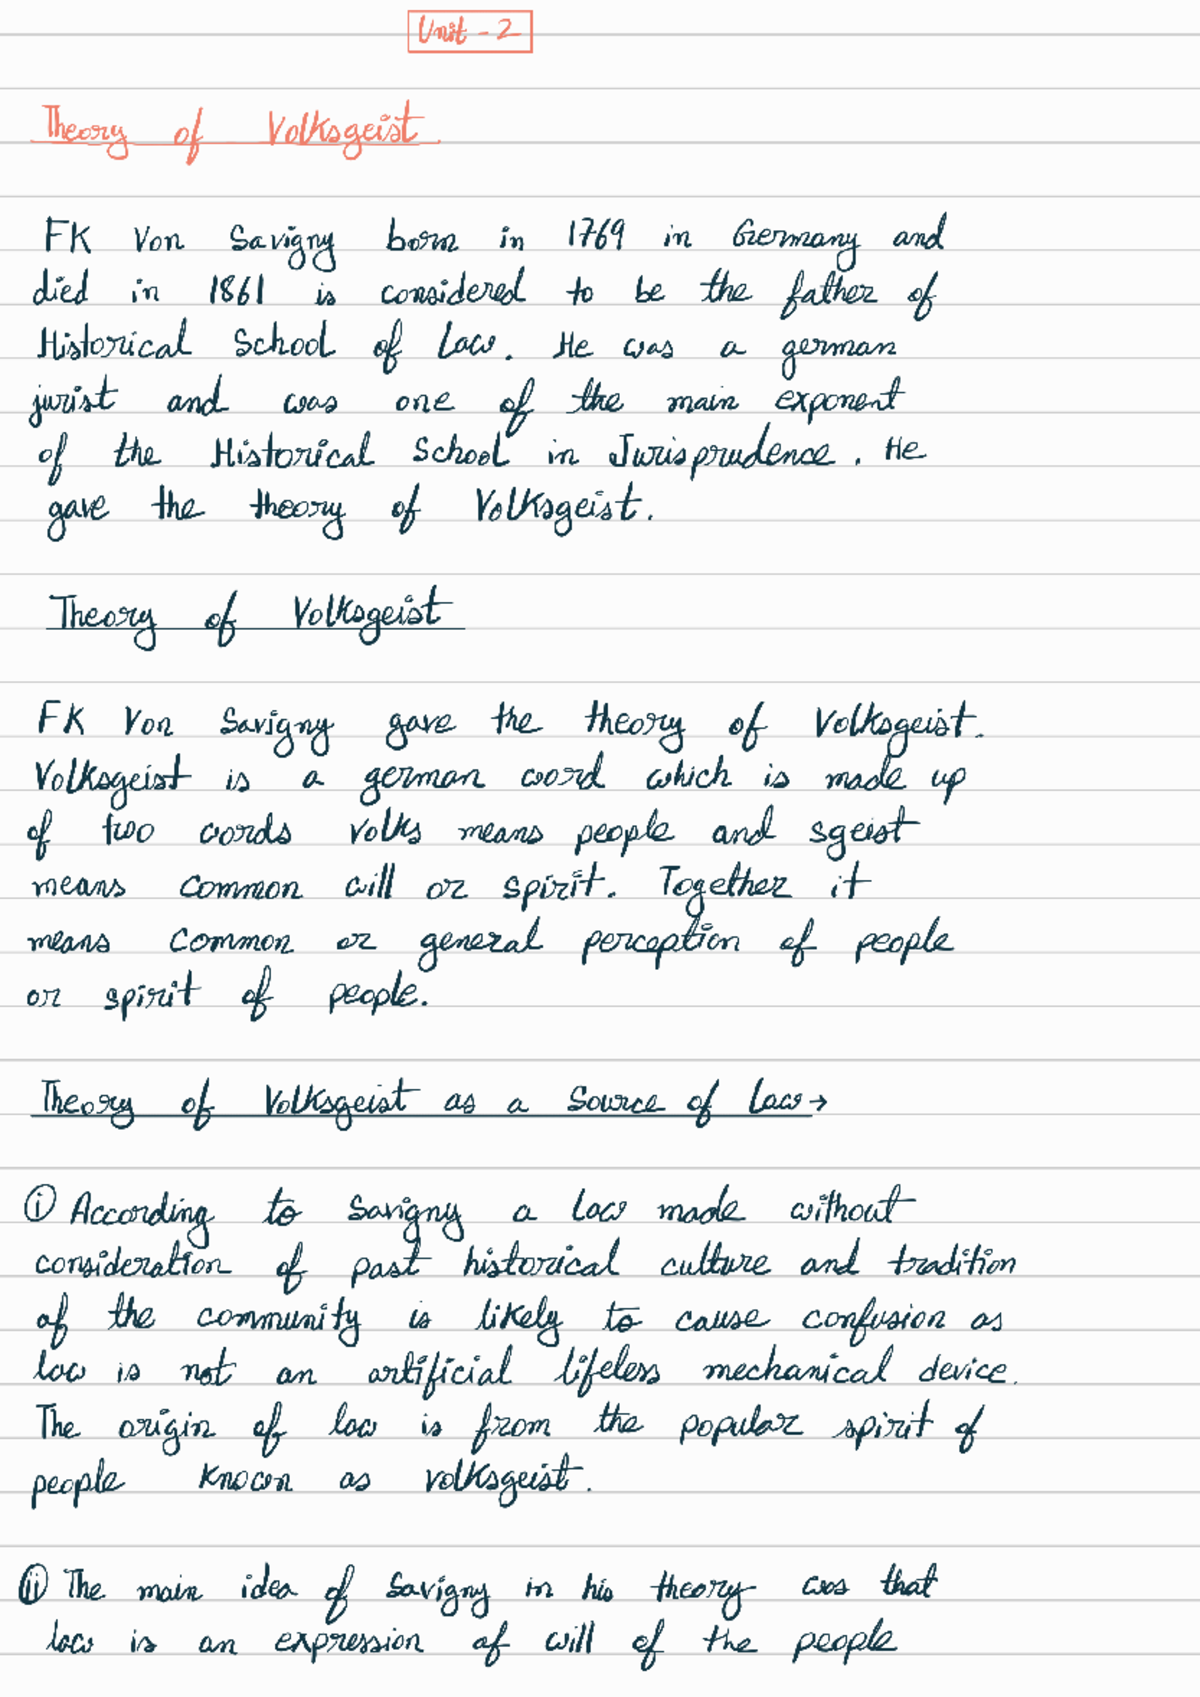 Unit - 2
Theory of Volksgeist
FK Von Savigny born in 1769 in Germany and
died in 1861 is considered to be the father of
Historical School of Law. He was a german
jurist and was one of the main exponent
of the Historical School in Jurisprudence. He
gave the theory of Volksgeist.
Theory of Volksgeist
FK Von Savigny gave the theory of Volksgeist.
Volksgeist is a german word which is made up
of two words volks means people and sgeist
means common will or spirit. Together it
means common or general perception of people
or spirit of people.
Theory of Volksgeist as a Source of Law →
(i) According to Savigny a law made without
consideration of past historical culture and tradition
of the community is likely to cause confusion as
law is not an artificial lifeless mechanical device.
The origin of law is from the popular spirit of
people known as volksgeist.
(ii) The main idea of Savigny in his theory was that
law is an expression of will of the people